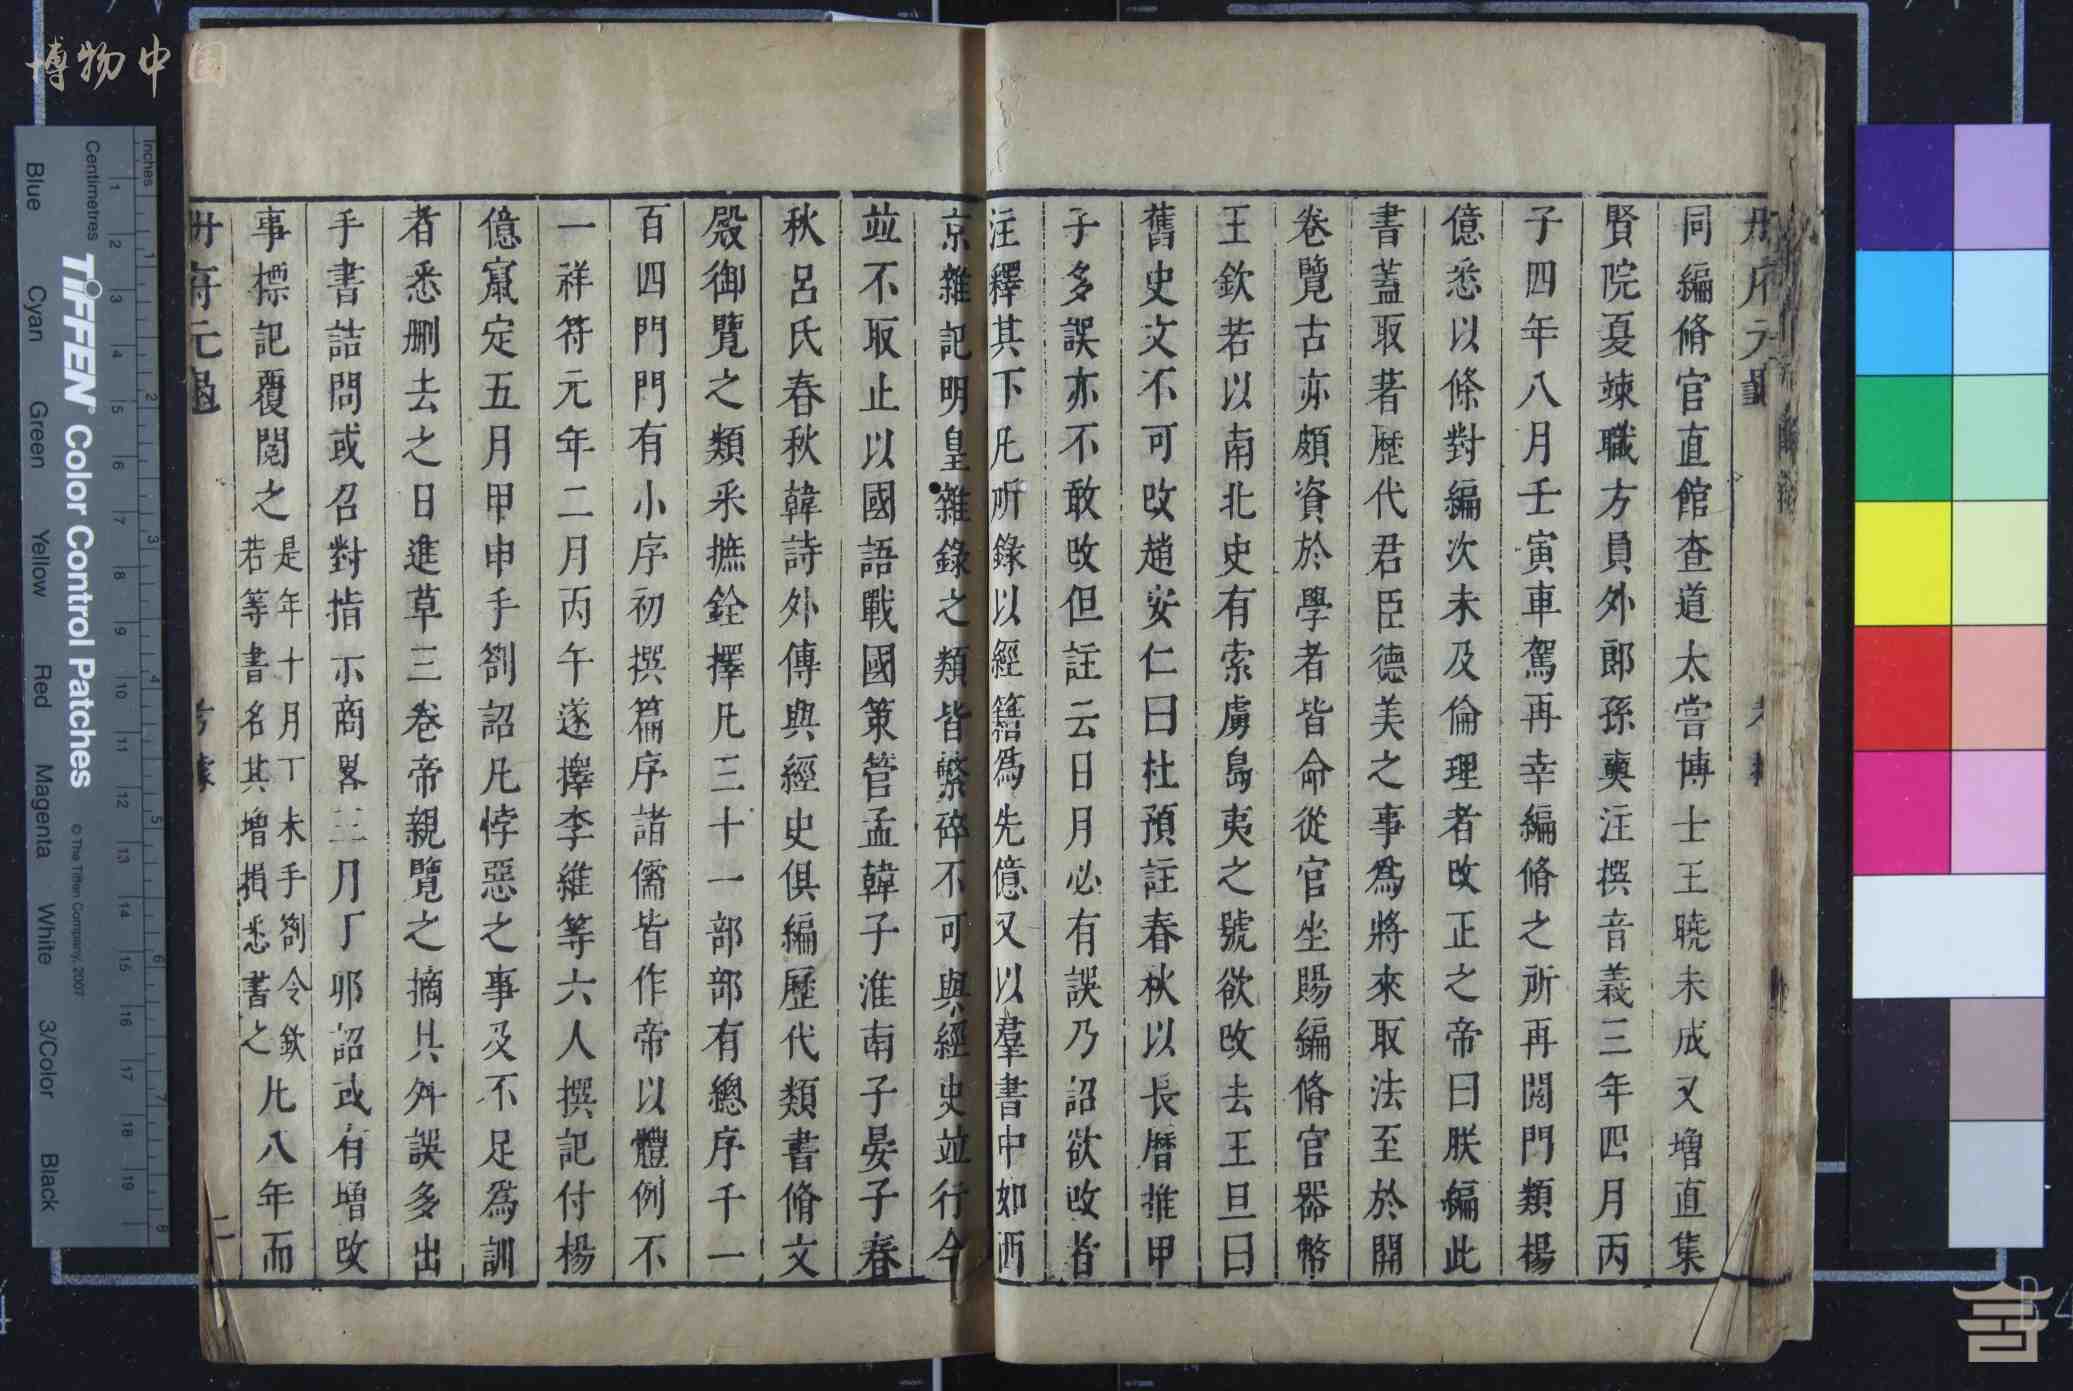 同編脩官直館查道太嘗博士王曉未成又增直集
賢院夏竦職方員外郎孫奭注撰音義三年四月丙
子四年八月壬寅車駕再幸編脩之所再閱門類楊
億悉以條對編次未及倫理者改正之帝曰朕編此
書蓋取著歷代君臣德美之事爲將來取法至於開
卷覽古亦頗資於學者皆命從官坐賜編脩官器幣
王欽若以南北史有索虜島夷之號欲改去王旦曰
舊史文不可改趙安仁曰杜預註春秋以長曆推甲
子多誤亦不敢改但註云日月必有誤乃詔欲改者
注釋其下凡所錄以經籍爲先億又以羣書中如西
京雜記明皇雜錄之類皆繁碎不可與經史並行今
並不取止以國語戰國策管孟韓子淮南子晏子春
秋呂氏春秋韓詩外傳與經史俱編歷代類書脩文
殿御覽之類采摭銓擇凡三十一部部有總序千一
百四門門有小序初撰篇序諸儒皆作帝以體例不
一祥符元年二月丙午遂擇李維等六人撰記付楊
億竄定五月甲申手劄詔凡悖惡之事及不足爲訓
者悉刪去之日進草三卷帝親覽之摘其舛誤多出
手書詰問或召對指示商畧三月丁卯詔或有增改
事標記覆閱之
是年十月丁未手劄令欽
若等書名其增損悉書之
凡八年而
冊府元龜
考據
二
博物中国
Inches
Centimetres
TIFFEN Color Control Patches
© The Tiffen Company, 2007
Blue Cyan Green Yellow Red Magenta White 3/Color Black